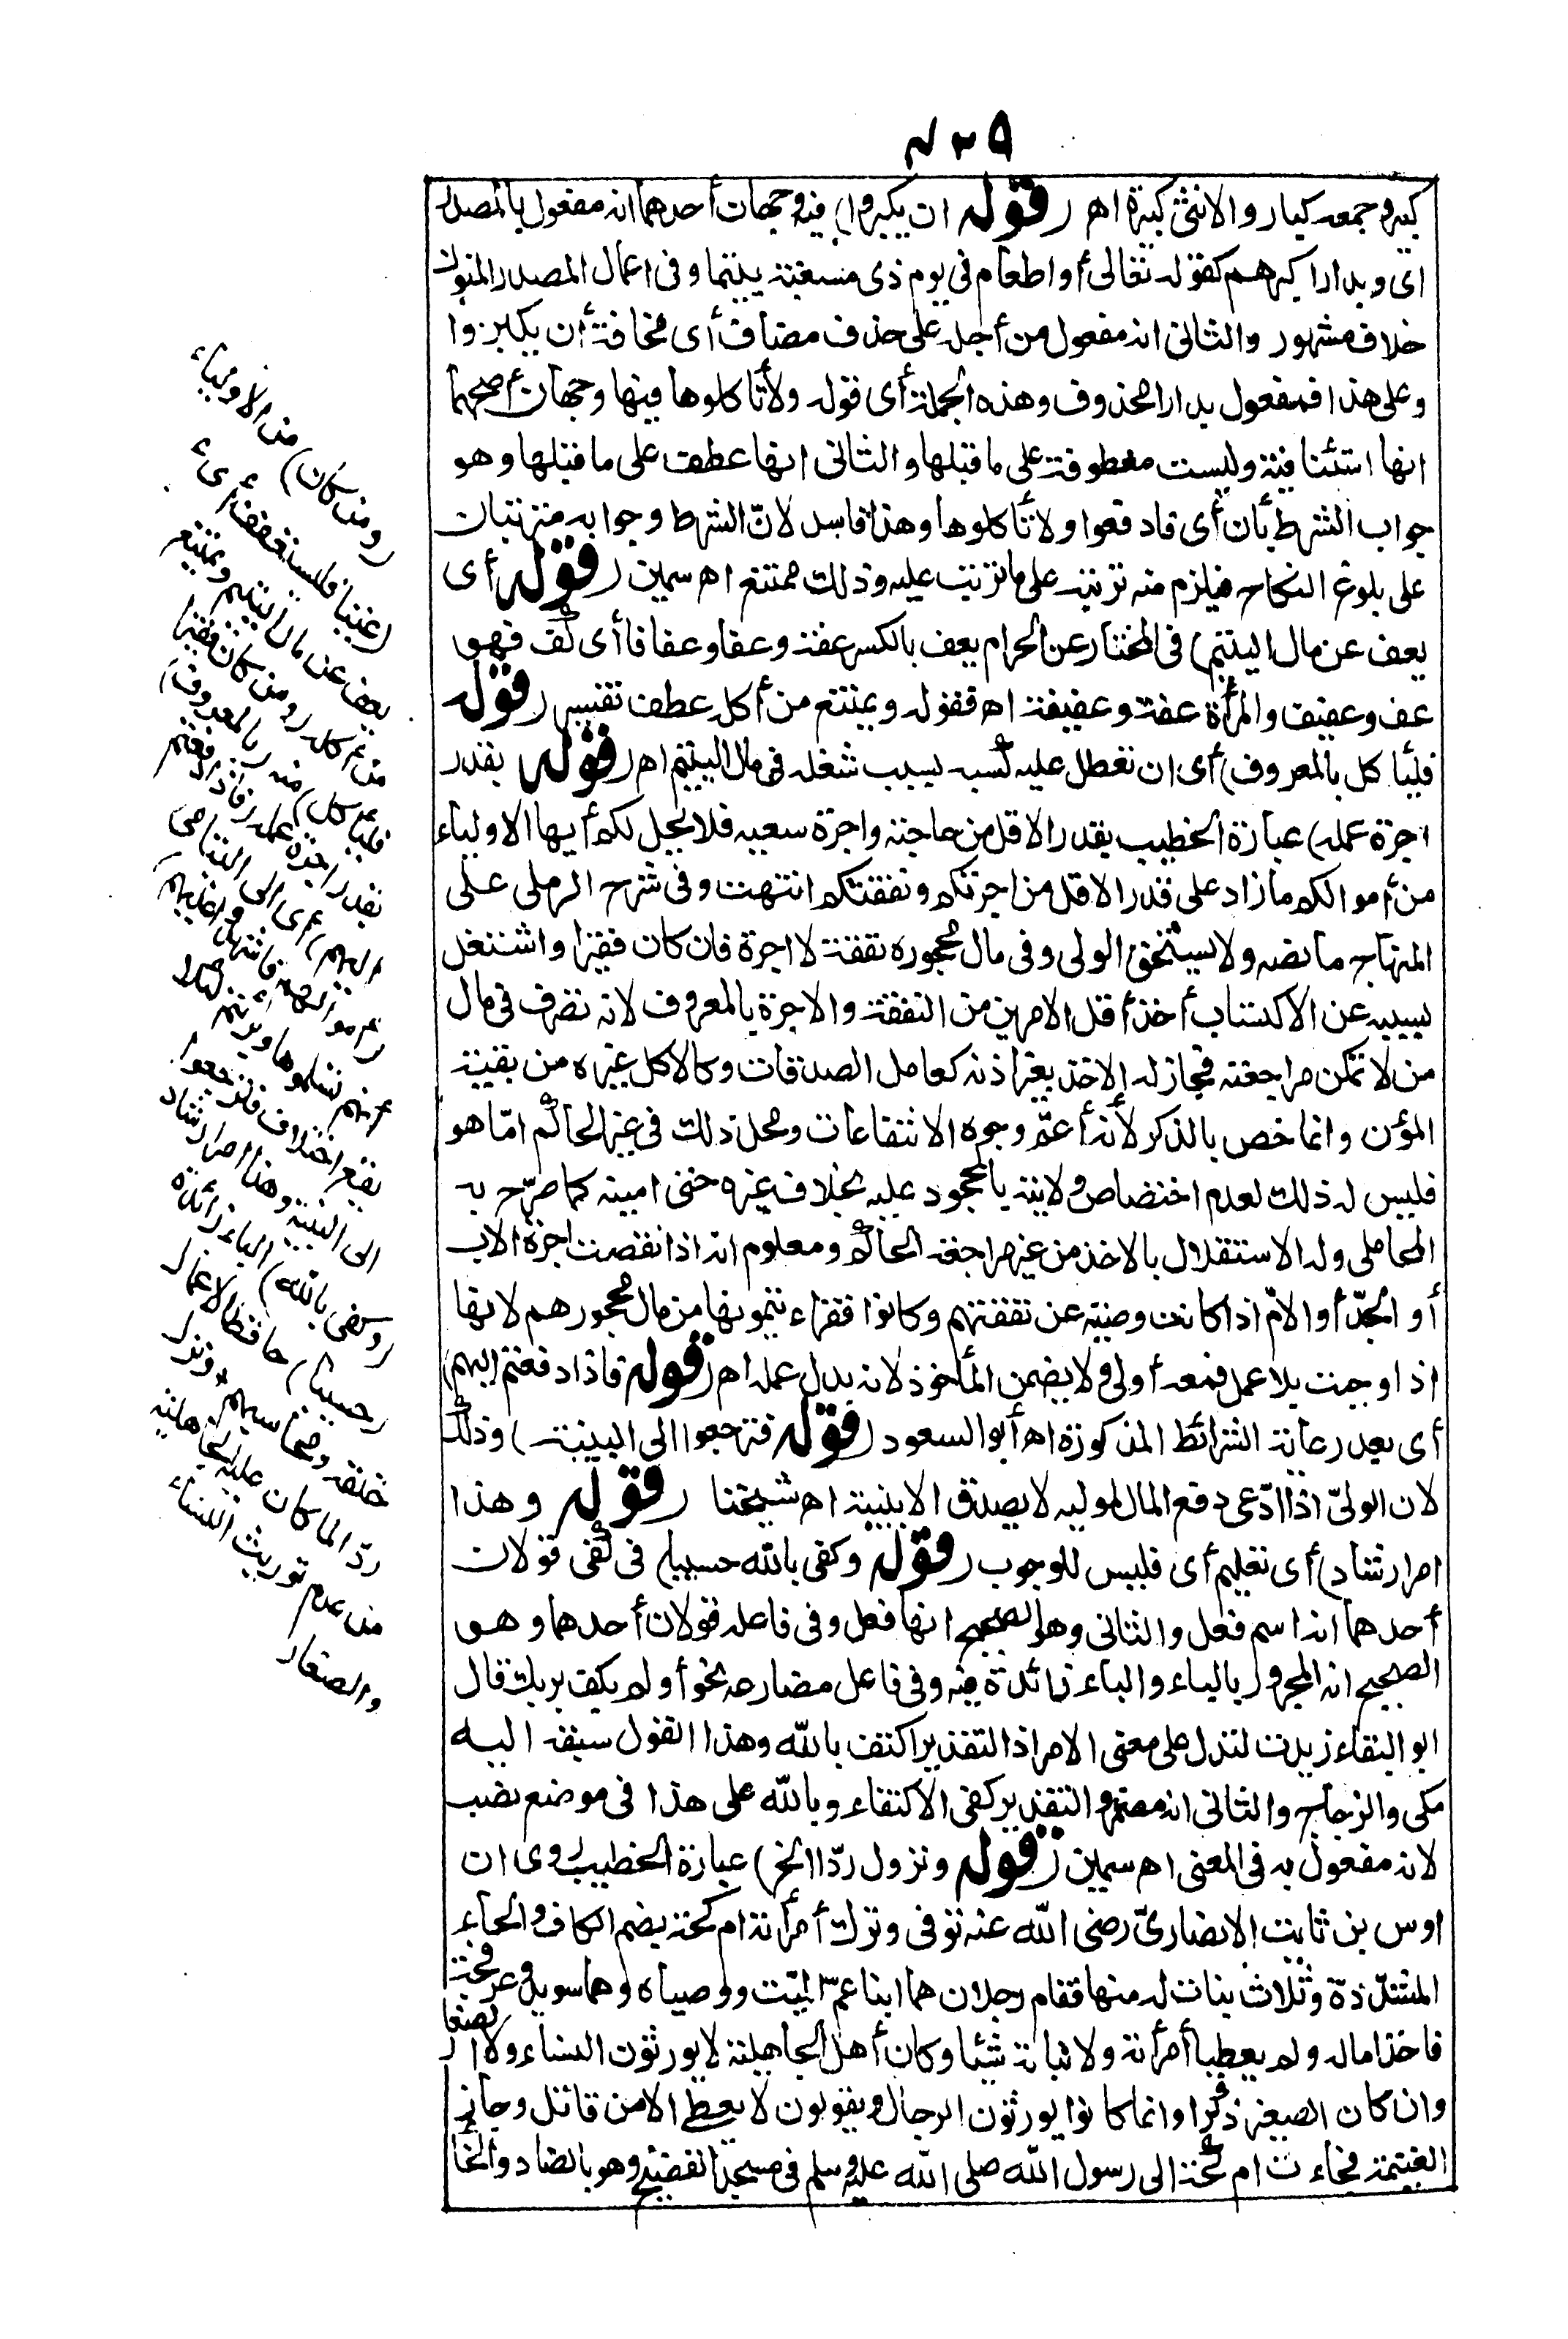 ٤٢٥
كبير وجمعه كبار والانثى كبيرة اه (قوله ان يكبروا) فيه وجهان أحدهما انه مفعول بالمصدر
اى وبدارا كبرهم كقوله تعالى أو اطعام فى يوم ذى مسغبة يتيما وفى اعمال المصدر المنون
خلاف مشهور والثانى انه مفعول من أجله على حذف مضاف أى مخافة أن يكبروا
وعلى هذا فمفعول بدارا محذوف وهذه الجملة أى قوله ولا تأكلوها فيها وجهان أصحهما
انها استئنافية وليست معطوفة على ما قبلها والثانى انها عطف على ما قبلها وهو
جواب الشرط بأن أى فادفعوا ولا تأكلوها وهذا فاسد لانّ الشرط وجوابه مترتبان
على بلوغ النكاح فيلزم منه ترتبه على ما ترتبت عليه وذلك ممتنع اه سمين (قوله أى
يعف عن مال اليتيم) فى المختار عن الحرام يعف بالكسر عفة وعفا وعفافا أى كف فهو
عف وعفيف والمرأة عفة وعفيفة اه فقوله ويمتنع من أكله عطف تفسير (قوله
فليأكل بالمعروف) أى ان تعطل عليه كسبه بسبب شغله فى مال اليتيم اه (قوله بقدر
اجرة عمله) عبارة الخطيب بقدر الاقل من حاجته واجرة سعيه فلا يحل لكم أيها الاولياء
من أموالكم ما زاد على قدر الاقل من اجرتكم ونفقتكم انتهت وفى شرح الرملى على
المنهاج ما نصه ولا يستحق الولى وفى مال محجوره نفقة لا اجرة فان كان فقيرا واشتغل
بسببه عن الاكتساب أخذ أقل الامرين من النفقة والاجرة بالمعروف لانه تصرف فى مال
من لا تمكن مراجعته فجاز له الاخذ بغير اذنه كعامل الصدقات وكالاكل غيره من بقية
المؤن وانما خص بالذكر لأنه أعمّ وجوه الانتفاعات ومحل ذلك فى غير الحاكم امّا هو
فليس له ذلك لعدم اختصاص ولايته بالمحجور عليه بخلاف غيره حتى امينه كما صرّح به
المحاملى وله الاستقلال بالاخذ من غير مراجعة الحاكم ومعلوم انه اذا نقصت اجرة الاب
أو الجدّ أو الامّ اذا كانت وصية عن نفقتهم وكانوا فقراء يتمونها من مال محجورهم لانها
اذا وجبت بلا عمل فمعه أولى ولا يضمن المأخوذ لانه بدل عمله اه (قوله فاذا دفعتم اليهم)
أى بعد رعاية الشرائط المذكورة اه أبو السعود (قوله فترجعوا الى البينة) وذلك
لان الولىّ اذا ادّعى دفع المال لموليه لا يصدق الا ببينة اه شيخنا (قوله وهذا
امر ارشاد) أى تعليم أى فليس للوجوب (قوله وكفى بالله حسيبا) فى كفى قولان
أحدهما انه اسم فعل والثانى وهو الصحيح انها فعل وفى فاعله قولان أحدهما وهو
الصحيح انه المجرور بالباء والباء زائدة فيه وفى فاعل مضارعه نحو أو لم يكف بربك قال
ابو البقاء زيدت لتدل على معنى الامر اذ التقدير اكتف بالله وهذا القول سبقه اليه
مكى والزجاج والثانى انه مضمر والتقدير كفى الاكتفاء وبالله على هذا فى موضع نصب
لانه مفعول به فى المعنى اه سمين (قوله ونزول ردّا الخ) عبارة الخطيب روى ان
اوس بن ثابت الانصارىّ رضى الله عنه توفى وترك أمرأته ام كحة بضم الكاف والحاء
المشدّدة وثلاث بنات له منها فقام رجلان هما ابنا عمّ الميّت ووصياه وهما سويد وعرفجة
فاخذا ماله ولم يعطيا أمرأته ولا بناته شيئا وكان أهل الجاهلية لا يورثون النساء ولا الصغار
وان كان الصغير ذكرا وانما كانوا يورثون الرجال ويقولون لا يعطى الا من قاتل وحاز
الغنيمة فجاءت ام كحة الى رسول الله صلى الله عليه وسلم فى مسجد الفضيخ وهو بالضاد والخا
(ومن كان) من الاولياء
(غنيا فليستعفف) أى
يعف عن مال اليتيم ويمتنع
من أكله (ومن كان فقيرا
فليأكل) منه (بالمعروف)
بقدر اجرة عمله (فاذا دفعتم
اليهم) أى الى اليتامى
(أموالهم فاشهدوا عليهم)
أنهم تسلموها وبرئتم لئلا
يقع اختلاف فترجعوا
الى البينة وهذا امر ارشاد
(وكفى بالله) الباء زائدة
(حسيبا) حافظا لاعمال
خلقه ومحاسبهم ونزل
ردّا لما كان عليه الجاهلية
من عدم توريث النساء
والصغار